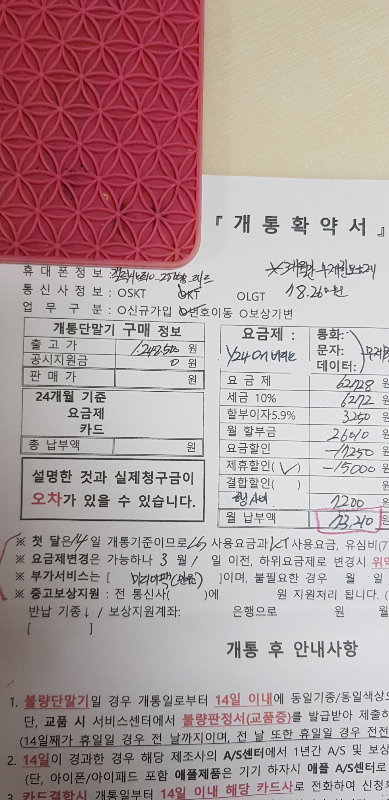 『 개 통 확 약 서 』
휴 대 폰 정 보 :
통 신 사 정 보 : OSKT ⵔKT OLGT
업 무 구 분 : O신규가입 O번호이동 O보상기변
개통단말기 구매 정보
출 고 가 원
공시지원금 0 원
판 매 가 원
24개월 기준
요금제
카드
총 납부액 원
설명한 것과 실제청구금이
오차가 있을 수 있습니다.
요금제 : 통화:
문자:
데이터:
요 금 제 62728 원
세금 10% 6272
할부이자5.9% 3250
월 할부금 26010 원
요금할인 -17250
제휴할인( ✓ ) -15000
결합할인( )
7200
월 납부액 73,210 원
※ 첫 달은 14 일 개통기준이므로 LG 사용요금과 KT 사용요금, 유심비(7
※ 요금제변경은 가능하나 3 월 1 일 이전, 하위요금제로 변경시 위약
※ 부가서비스는 [ ]이며, 불필요한 경우 월 일
※ 중고보상지원 : 전 통신사( )에 원 지원처리 됩니다. (
반납 기종↓ / 보상지원계좌: 은행으로 원 월
[ ]
개통 후 안내사항
1. 불량단말기일 경우 개통일로부터 14일 이내에 동일기종/동일색상으
단, 교품 시 서비스센터에서 불량판정서(교품증)를 발급받아 제출하
(14일째가 휴일일 경우 전 날까지이며, 전 날 또한 휴일일 경우 전전
2. 14일이 경과한 경우 해당 제조사의 A/S센터에서 1년간 A/S 및 보상
(단, 아이폰/아이패드 포함 애플제품은 기기 하자시 애플 A/S센터로
3. 카드결합시 개통일부터 14일 이내 해당 카드사로 전화하여 신청